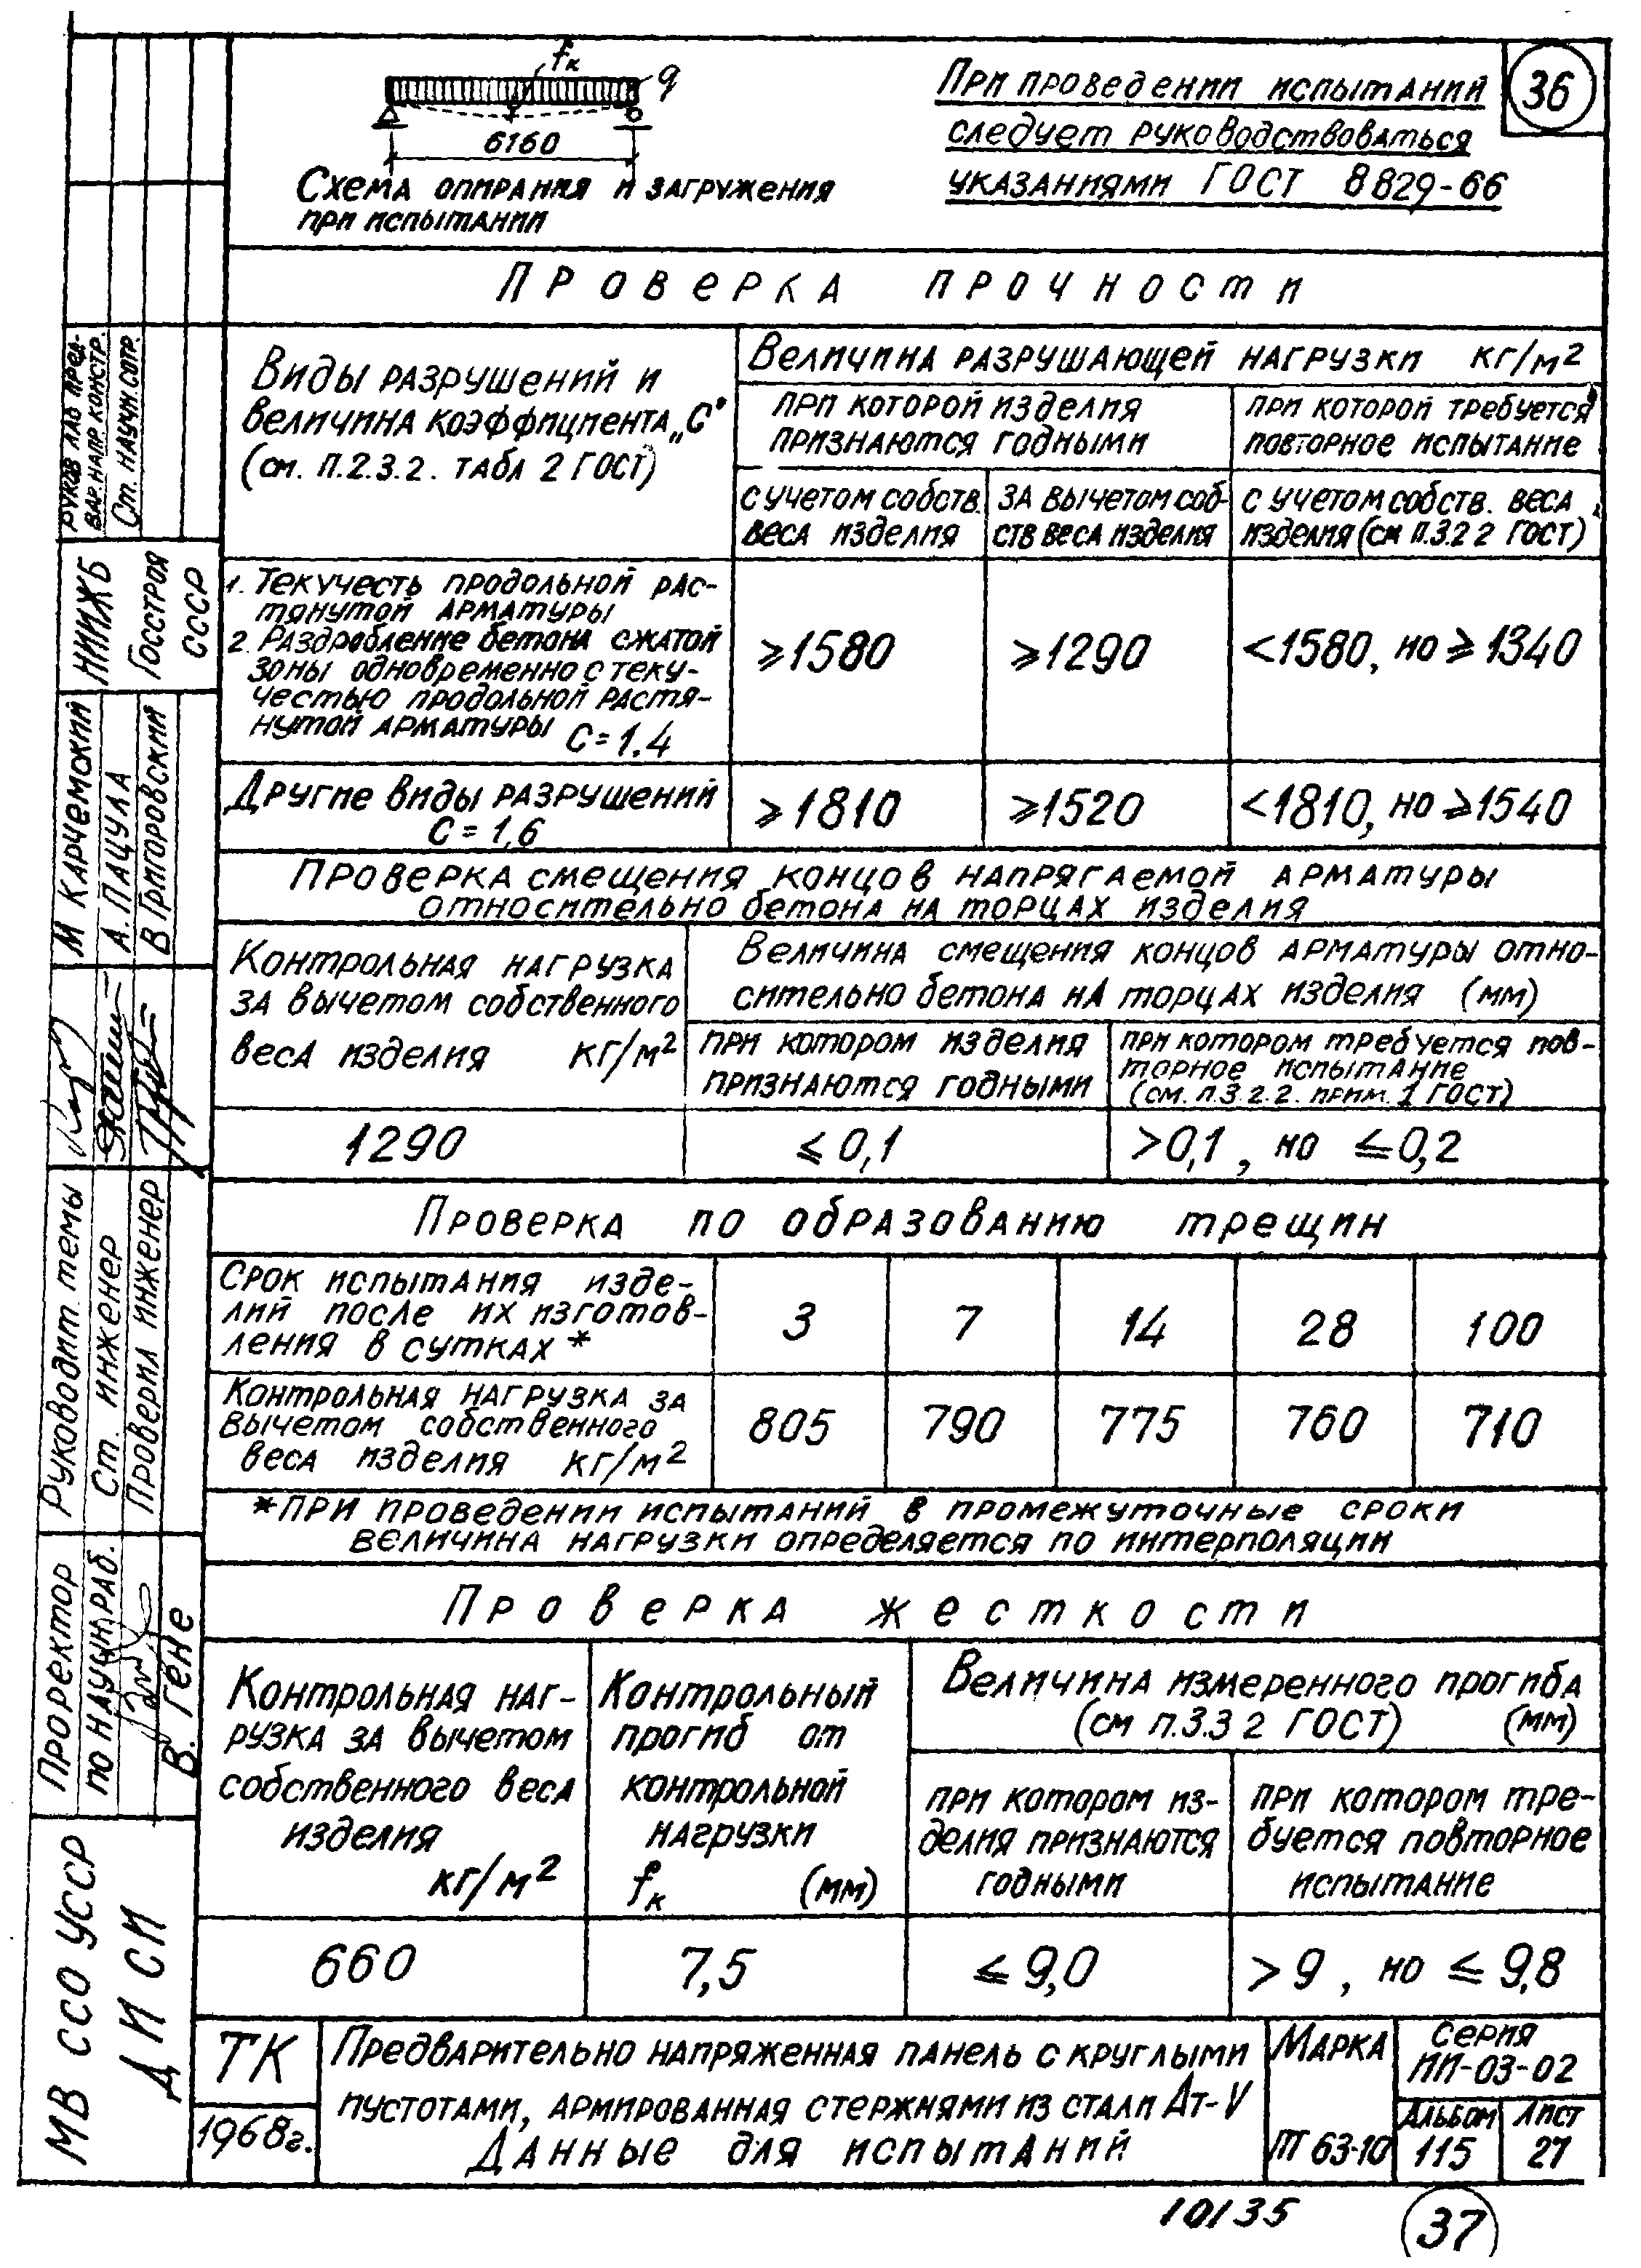 fк
q
6160
Схема опирания и загружения
при испытании
При проведении испытаний
следует руководствоваться
указаниями ГОСТ 8829-66
36
Проверка прочности
Виды разрушений и
величина коэффициента „С"
(см. п.2.3.2. табл 2 ГОСТ)
Величина разрушающей нагрузки кг/м²
при которой изделия
признаются годными
при которой требуется
повторное испытание
с учетом собств.
веса изделия
за вычетом соб-
ств веса изделия
с учетом собств. веса
изделия (см п.3.2 2 ГОСТ)
1. Текучесть продольной рас-
тянутой арматуры
2. Раздробление бетона сжатой
зоны одновременно с теку-
честью продольной растя-
нутой арматуры С=1.4
⩾1580
⩾1290
<1580, но ⩾1340
Другие виды разрушений
С=1,6
⩾1810
⩾1520
<1810, но ⩾1540
Проверка смещения концов напрягаемой арматуры
относительно бетона на торцах изделия
Контрольная нагрузка
за вычетом собственного
веса изделия кг/м²
Величина смещения концов арматуры отно-
сительно бетона на торцах изделия (мм)
при котором изделия
признаются годными
при котором требуется пов-
торное испытание
(см. п.3.2.2. прим. 1 ГОСТ)
1290
⩽0,1
>0,1, но ⩽0,2
Проверка по образованию трещин
Срок испытания изде-
лий после их изготов-
ления в сутках *
3
7
14
28
100
Контрольная нагрузка за
вычетом собственного
веса изделия кг/м²
805
790
775
760
710
*При проведении испытаний в промежуточные сроки
величина нагрузки определяется по интерполяции
Проверка жесткости
Контрольная наг-
рузка за вычетом
собственного веса
изделия
кг/м²
Контрольный
прогиб от
контрольной
нагрузки
fк (мм)
Величина измеренного прогиба
(см п.3.3 2 ГОСТ) (мм)
при котором из-
делия признаются
годными
при котором тре-
буется повторное
испытание
660
7,5
⩽9,0
>9, но ⩽9,8
ТК
1968г.
Предварительно напряженная панель с круглыми
пустотами, армированная стержнями из стали Ат-V
Данные для испытаний
Марка
ПТ 63-10
Серия
ИИ-03-02
Альбом
115
Лист
27
10135
37
Руков лаб пред-
вар. напр. констр.
Ст. научн. сотр.
НИИЖБ
Госстроя
СССР
М Карчемский
А. Пацула
В Григоровский
Руководит. темы
Ст. инженер
Проверил инженер
Проректор
по научн. раб.
В. Гене
МВ ССО УССР
ДИСИ